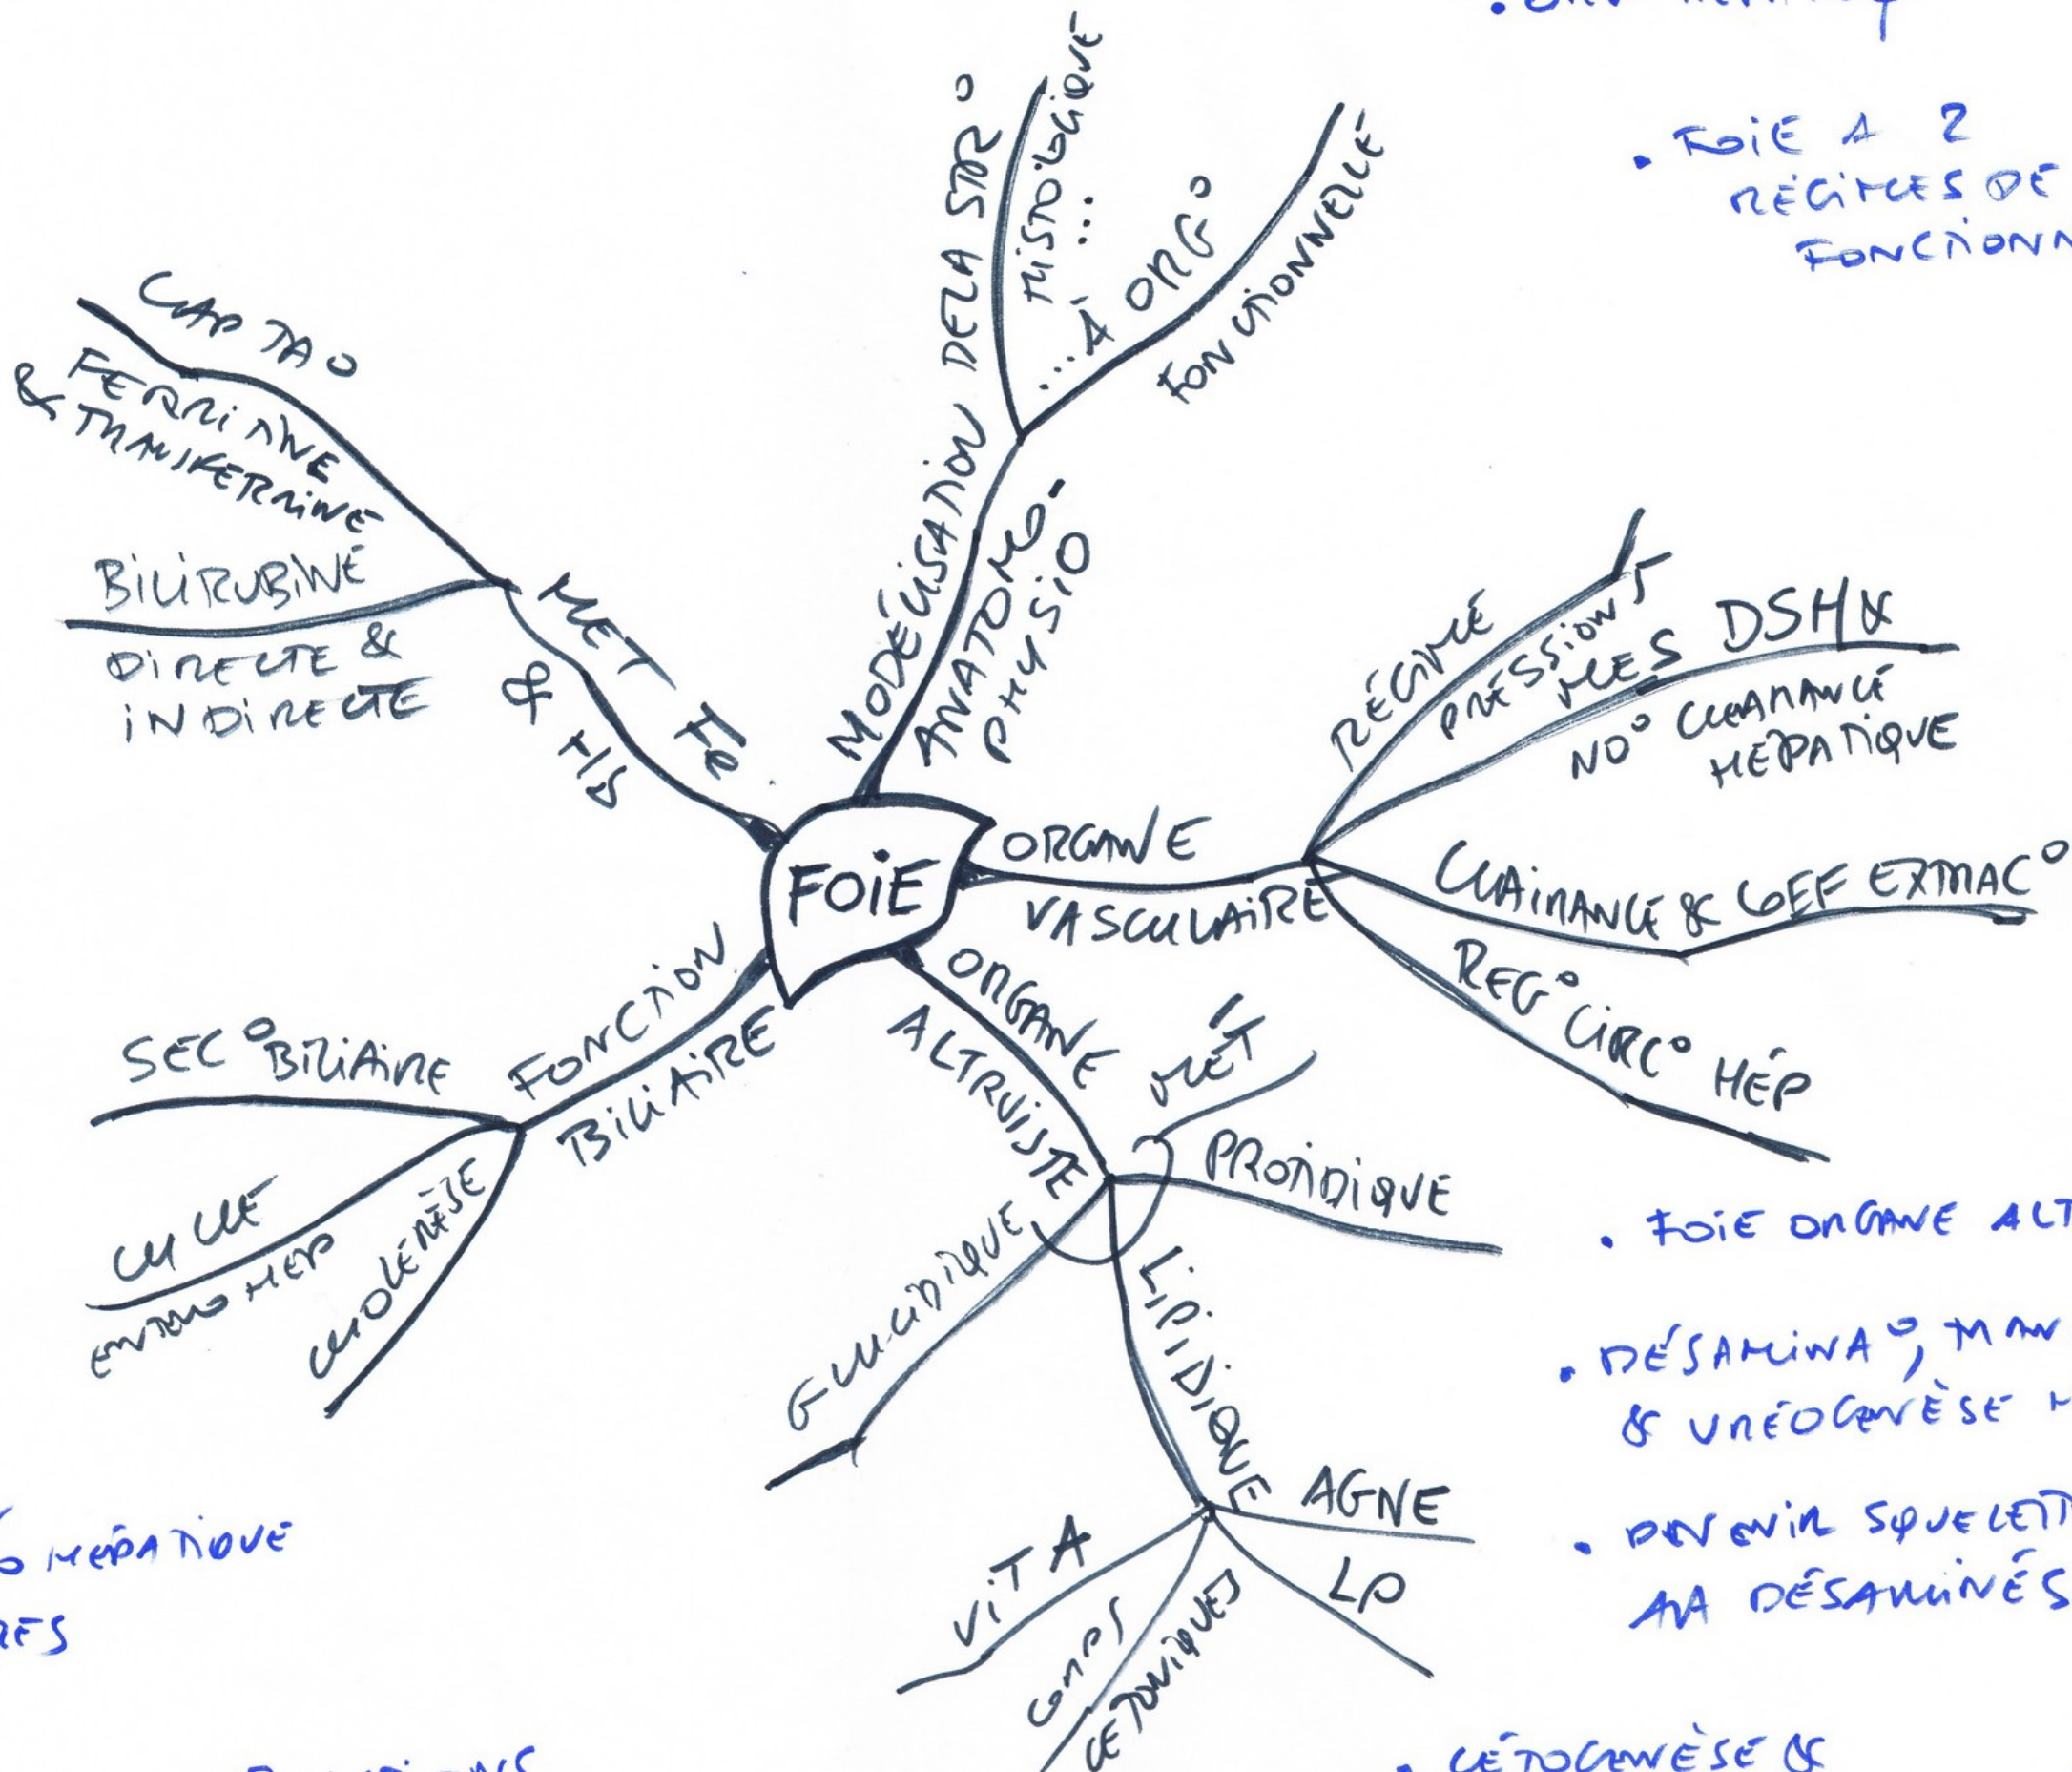 FOIE
MODÉLISATION DE LA STR°
HISTOLOGIQUE
...
...À ORG°
FONCTIONNELLE
ANATOMO-
PHYSIO
ORGANE
VASCULAIRE
RÉGIME
PRESSIONS
DSH &
NO° CLEARANCE
HÉPATIQUE
CLAIRANCE & COEF EXTRAC°
REG° CIRC° HÉP
ORGANE
ALTRUISTE
MET
PROTIDIQUE
LIPIDIQUE
AGNE
LP
CORPS
CÉTONIQUES
VIT A
GLUCIDIQUE
FONCTION
BILIAIRE
SEC° BILIAIRE
CYCLE
ENTÉRO HÉP
CHOLÉRÈSE
MET Fe
&
CAPTA°
FERRITINE
& TRANSFERRINE
BILIRUBINE
DIRECTE &
INDIRECTE
• FOIE A 2
RÉGIMES DE
FONCTIONN
• FOIE ORGANE ALT
• DÉSAMINA°, TRAN
& URÉOGENÈSE H
• DEVENIR SQUELETT
AA DÉSAMINÉS
• CÉTOGENÈSE &
HÉPATIQUE
RES